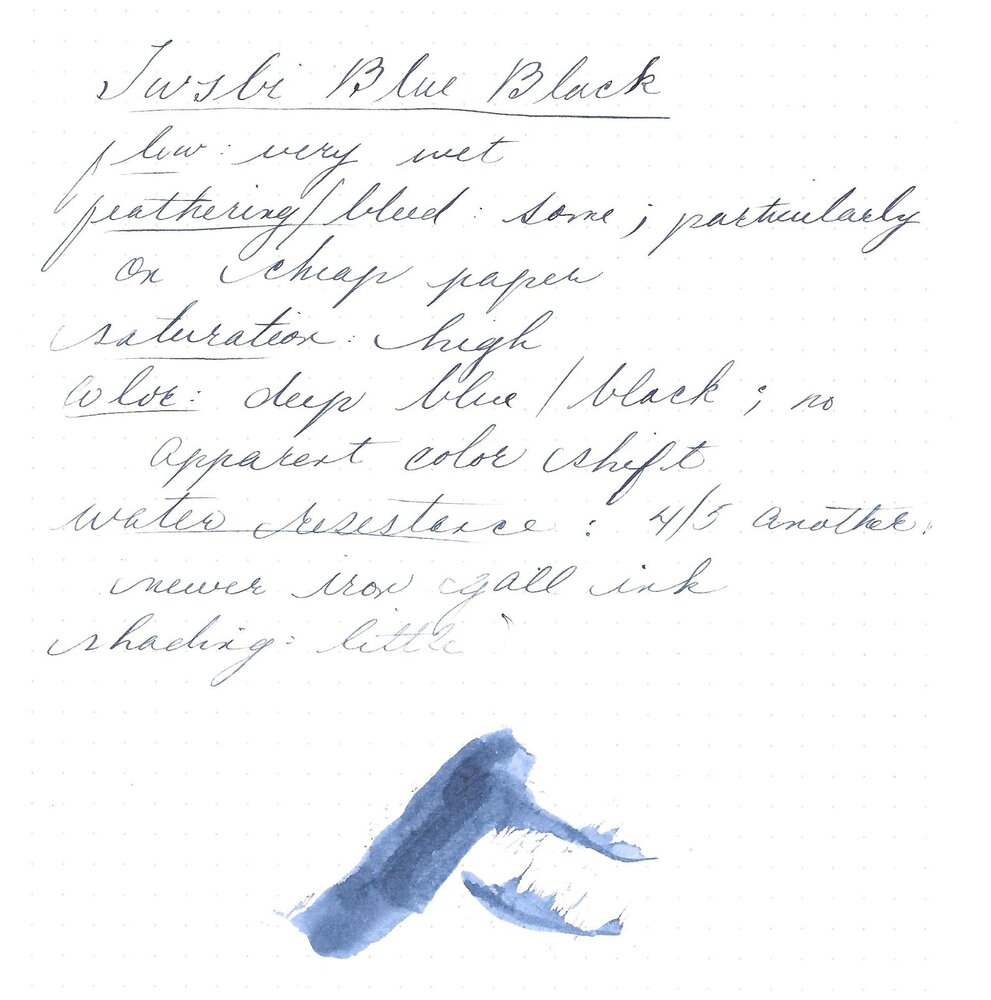 Twsbi Blue Black
flow: very wet
feathering/bleed: some; particularly
on cheap paper
saturation: high
color: deep blue/black; no
apparent color shift
water resistance: 4/5 another
newer iron gall ink
shading: little